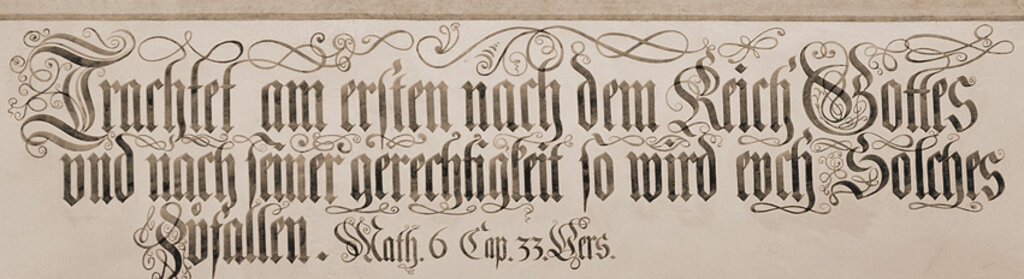 Trachtet am ersten nach dem Reich Gottes
vnd nach seiner gerechtigkeit so wird eych Solches
Zvfallen. Math. 6 Cap. 33. Vers.